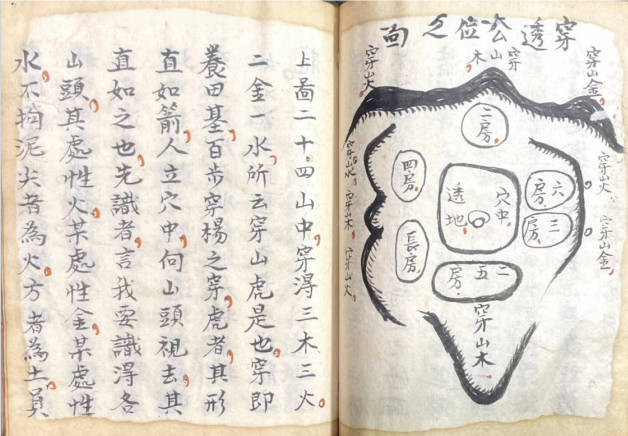 穿透公位之啚
穿山金
穿山木
穿山火
穿山火
穿山金
二房
六房
三房
穴中
透地
四房
長房
二五房
穿山木
穿山水
穿山木
穿山火
上啚二十四山中穿得三木三火
二金一水所云穿山虎是也穿即
養田基百步穿楊之穿虎者其形
直如箭人立穴中向山頭視去其
直如之也先識者言我要識得各
山頭其處性火某處性金某處性
水不拘泥尖者為火方者為土員